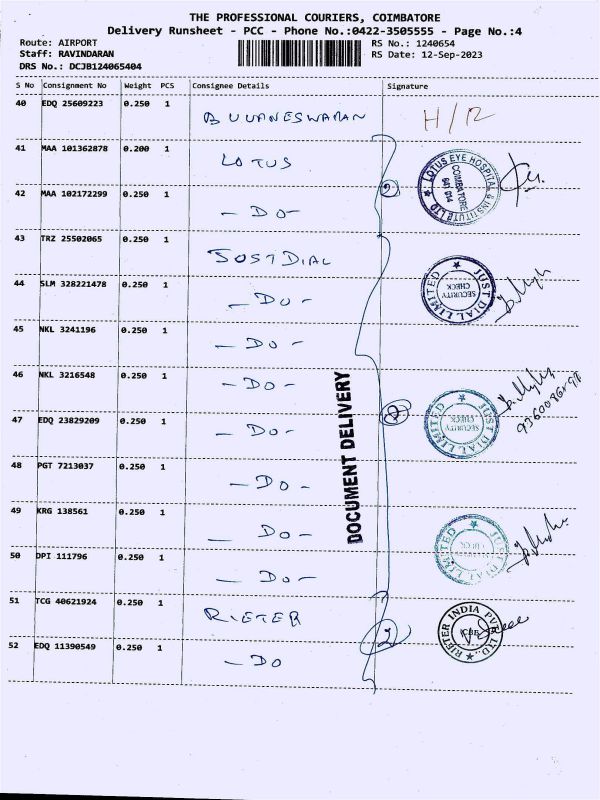 THE PROFESSIONAL COURIERS, COIMBATORE
Delivery Runsheet - PCC - Phone No.:0422-3505555 - Page No.:4
Route: AIRPORT RS No.: 1240654
Staff: RAVINDARAN RS Date: 12-Sep-2023
DRS No.: DCJB124065404
S No Consignment No Weight PCS Consignee Details Signature
40 EDQ 25609223 0.250 1 BUVANESWARAN H/R
41 MAA 101362878 0.200 1 LOTUS
LOTUS EYE HOSPITAL & INSTITUTE LTD
COIMBATORE
641 014
42 MAA 102172299 0.250 1 - DO -
43 TRZ 25502065 0.250 1 JUSTDIAL
44 SLM 328221478 0.250 1 - DO -
JUST DIAL LIMITED
SECURITY CHECK
45 NKL 3241196 0.250 1 - DO -
46 NKL 3216548 0.250 1 - DO -
47 EDQ 23829209 0.250 1 - DO -
JUST DIAL LIMITED
SECURITY CHECK
48 PGT 7213037 0.250 1 - DO -
49 KRG 138561 0.250 1 - DO -
50 DPI 111796 0.250 1 - DO -
JUST DIAL LIMITED
51 TCG 40621924 0.250 1 RIETER
RIETER INDIA PVT. LTD.
52 EDQ 11390549 0.250 1 - DO
2
DOCUMENT DELIVERY